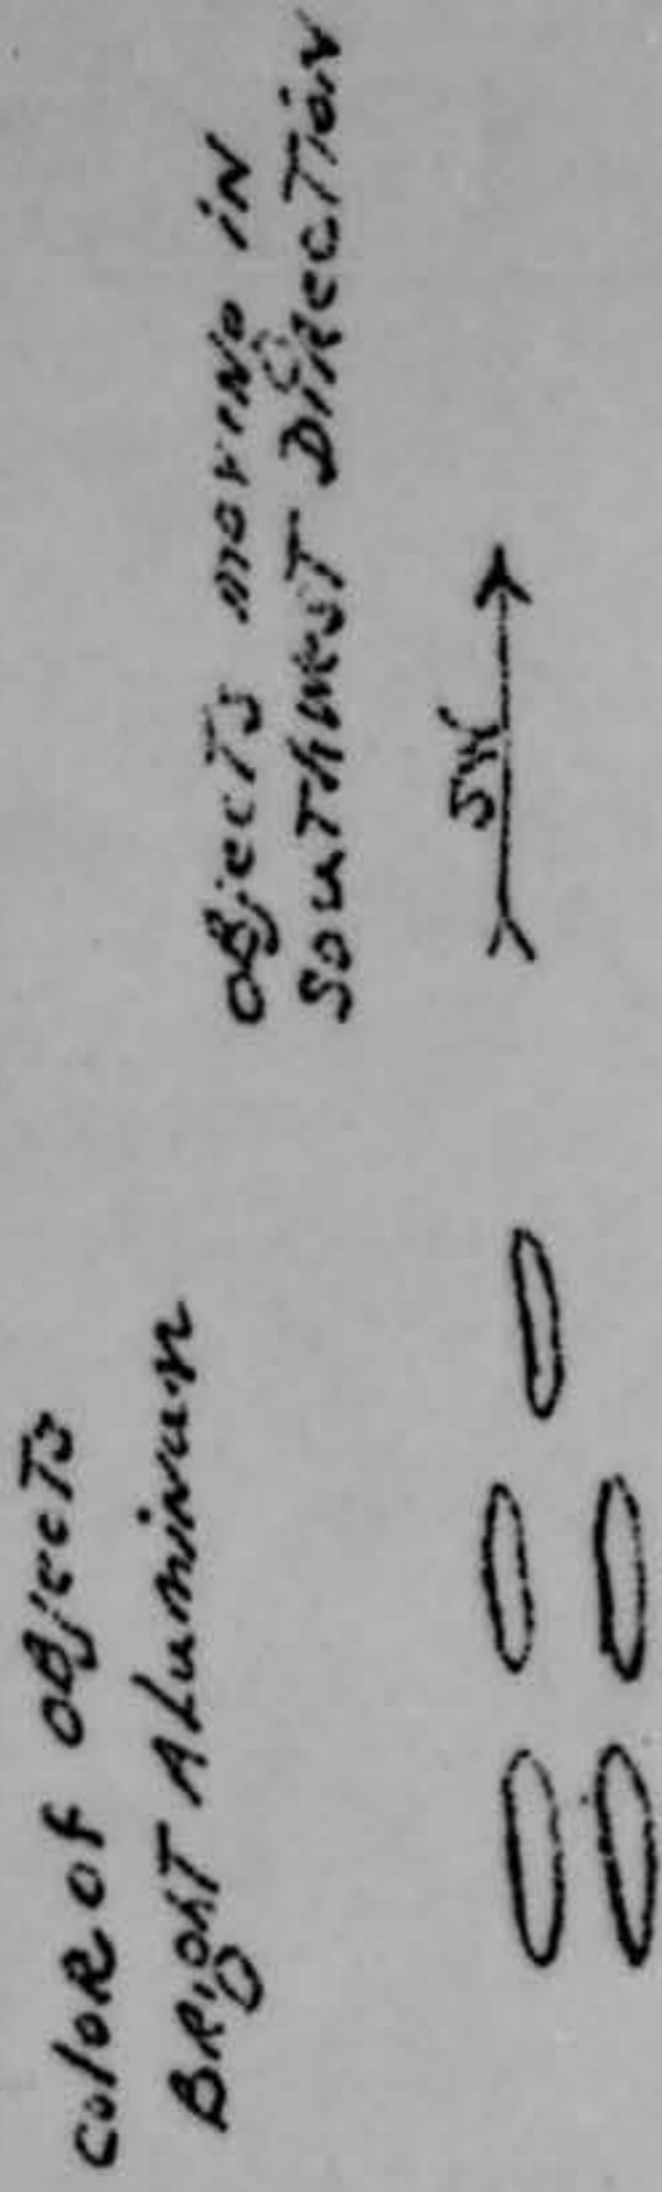 coloR of oBjecTs
BRighT ALuminum
oBjecTs moving iN
SouThwesT DiRecTioN
SW